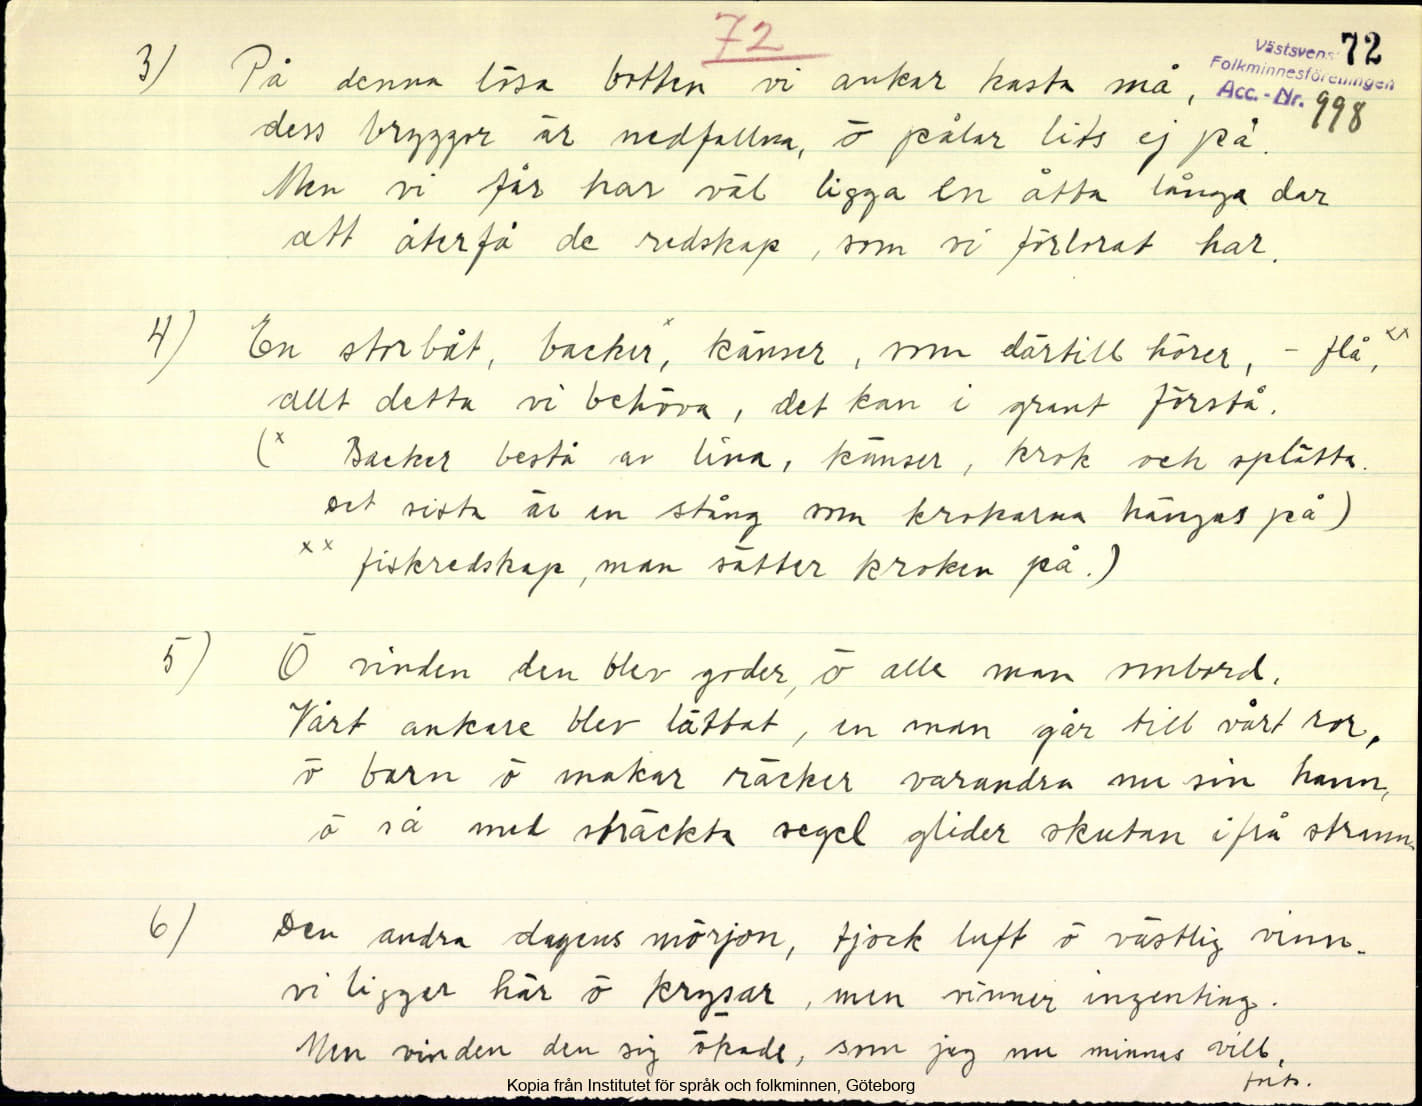 72
72
Västsvens
Folkminnesföreningen
Acc.-Nr. 998
3) På denna lösa botten vi ankar kasta må,
dess bryggor är nedfallna, ö pålar lits ej på.
Men vi får har väl ligga en åtta långa dar
att återfå de redskap, som vi förlorat har.
4) En storbåt, backer,ˣ känser, som därtill hörer, - flå,ˣˣ
allt detta vi behöva, det kan i grant förstå.
(ˣ Backer bestå av lina, känser, krok och splätta.
det sista är en stång som krokarna hängas på)
ˣˣ fiskredskap, man sätter kroken på.)
5) Ö vinden den blev goder, ö alle man ombord.
Vårt ankare blev lättat, en man går till vårt ror,
ö barn ö makar räcker varandra nu sin hann,
ö så med sträckta segel glider skutan ifrå strann.
6) Den andra dagens mörjon, tjock luft ö västlig vinn.
vi ligger här ö krysar, men vinner ingenting.
Men vinden den sig ökade, som jag nu minnas vill,
forts.
Kopia från Institutet för språk och folkminnen, Göteborg